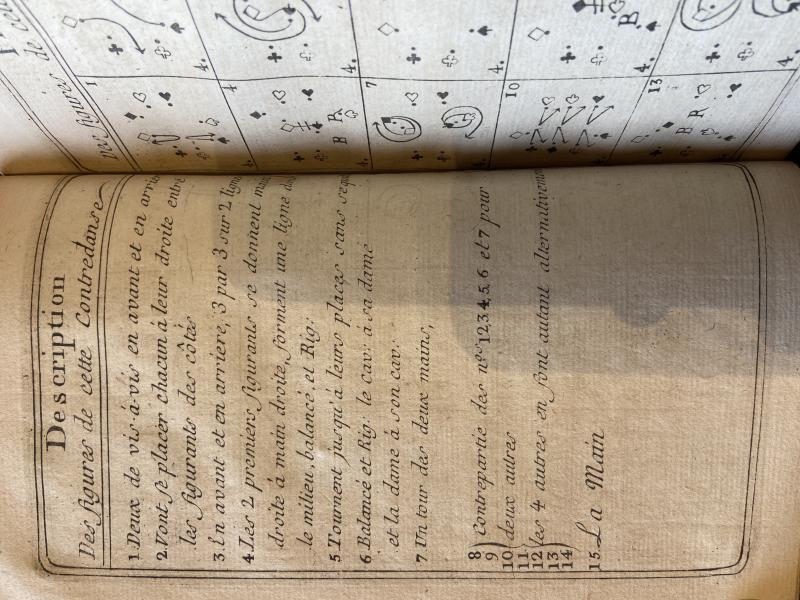 Description
Des figures de cette Contredanse
1 Deux de vis-à-vis en avant et en arrie
2. Vont se placer chacun à leur droite entre
les figurants des côtés
3 En avant et en arriere, 3 par 3 sur 2 lign
4. Les 2 premiers figurants se donnent main
droite à main droite, forment une ligne da
le milieu, balancé, et Rig:
5 Tournent jusqu'à leurs places sans se qu
6 Balancé et Rig: le cav: à sa dame
et la dame à son cav:
7 Un tour des deux mains,
8) Contrepartie des nos 1 2 3 4, 5, 6 et 7 pour
9)
10) deux autres
11)
12) les 4 autres en font autant alternativemen
13)
14)
15. La Main
1
4
7
10
13
4.
4.
4.
4.
4.
B
R
B
B
R